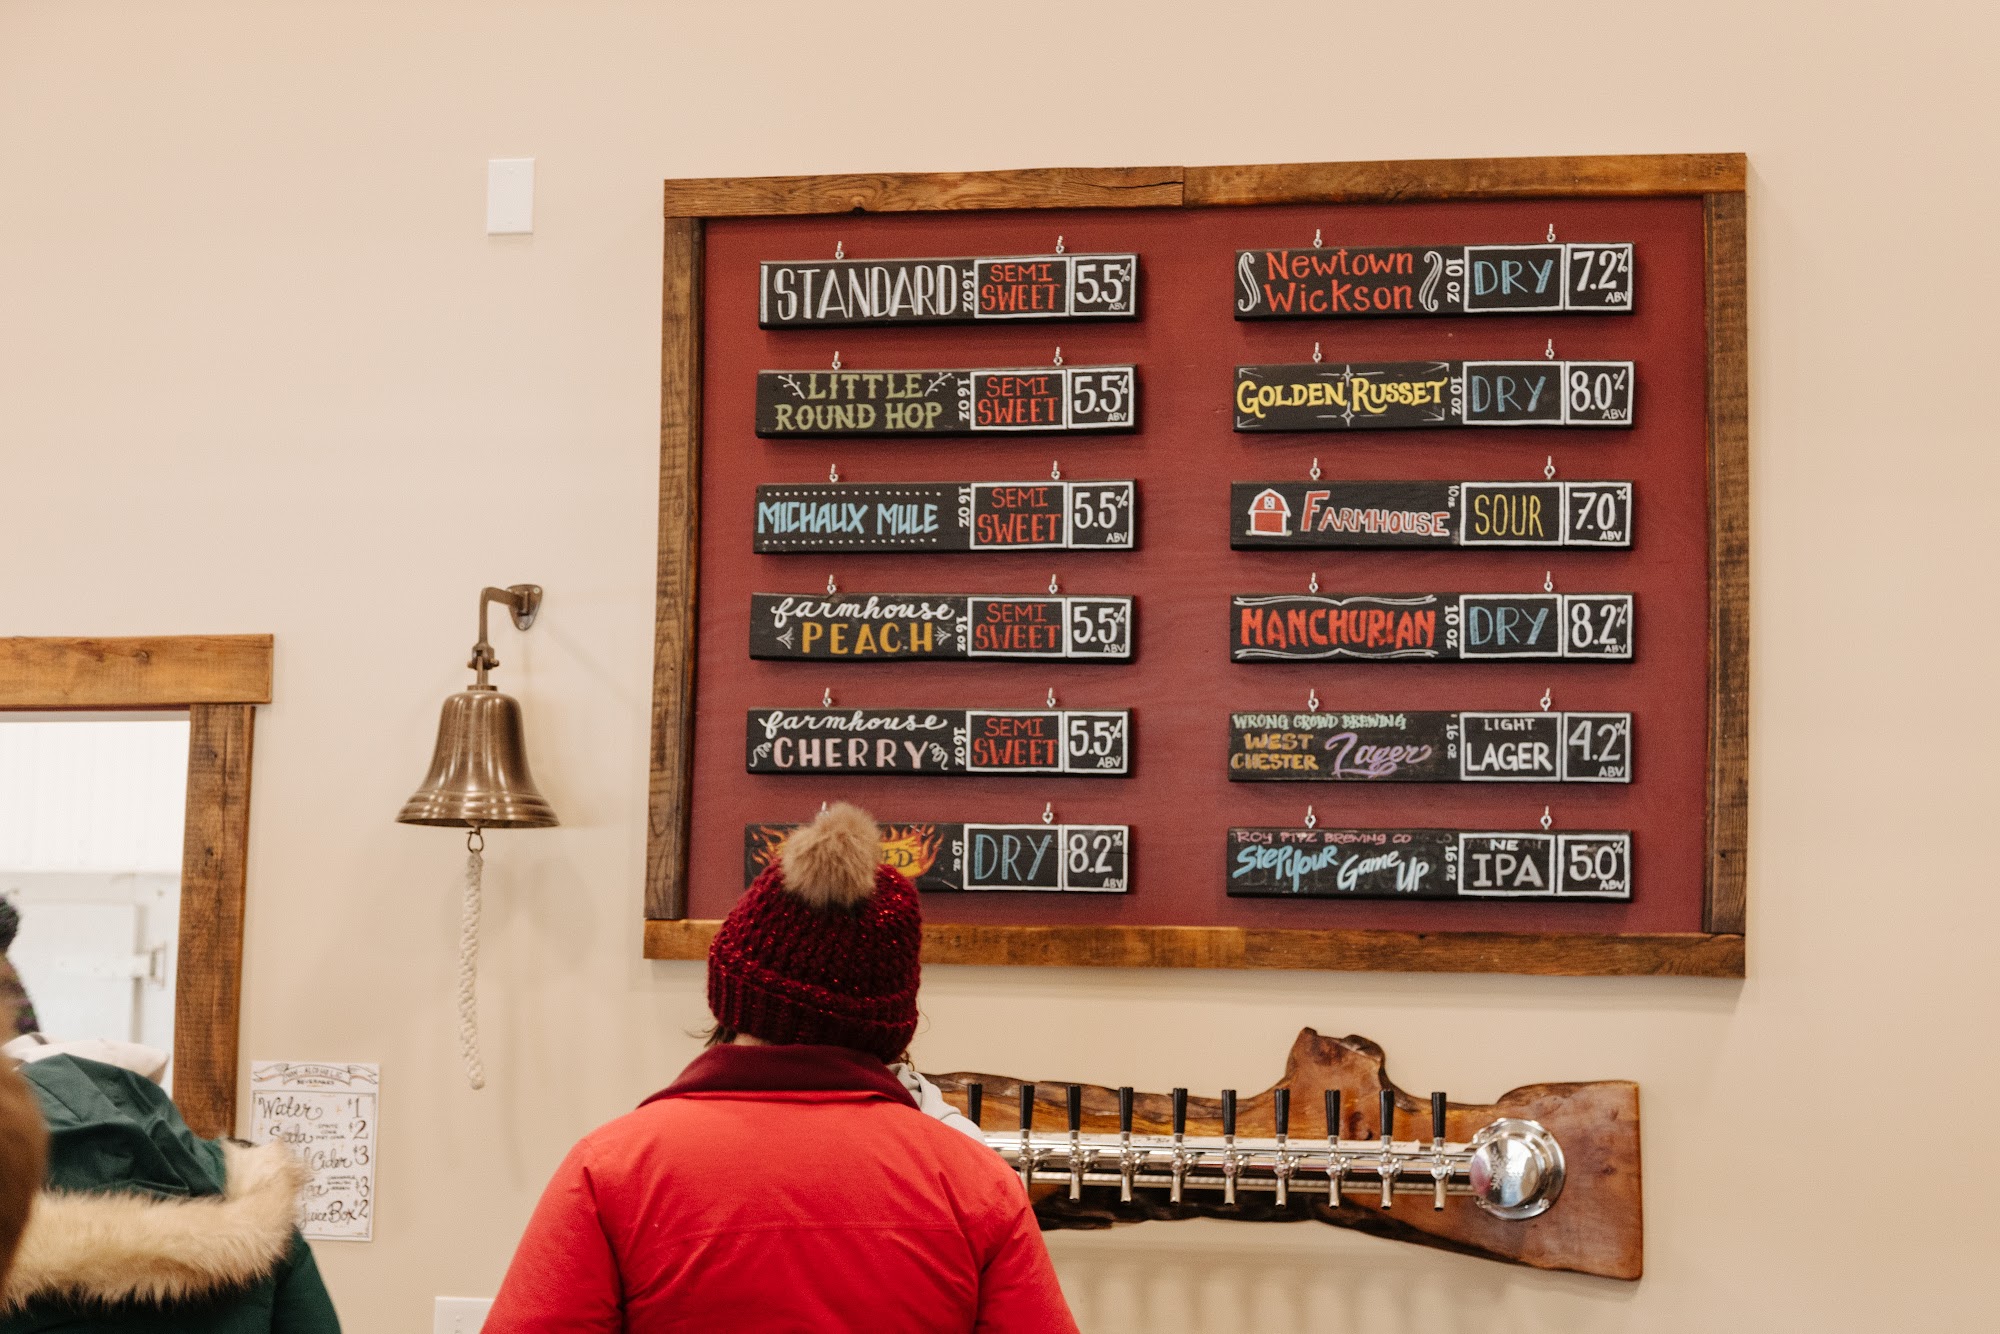 STANDARD 16 OZ SEMI SWEET 5.5% ABV
LITTLE ROUND HOP 16 OZ SEMI SWEET 5.5% ABV
MICHAUX MULE 16 OZ SEMI SWEET 5.5% ABV
farmhouse PEACH 16 OZ SEMI SWEET 5.5% ABV
farmhouse CHERRY 16 OZ SEMI SWEET 5.5% ABV
10 OZ DRY 8.2% ABV
Newtown Wickson 10 OZ DRY 7.2% ABV
GOLDEN RUSSET 10 OZ DRY 8.0% ABV
FARMHOUSE 10 OZ SOUR 7.0% ABV
MANCHURIAN 10 OZ DRY 8.2% ABV
WRONG CROWD BREWING
WEST CHESTER Lager 16 OZ LIGHT LAGER 4.2% ABV
ROY PITZ BREWING CO
Step Your Game Up 16 OZ NE IPA 5.0% ABV
BEVERAGES
Water $1
Soda $2
Cider $3
$3
Juice Box $2